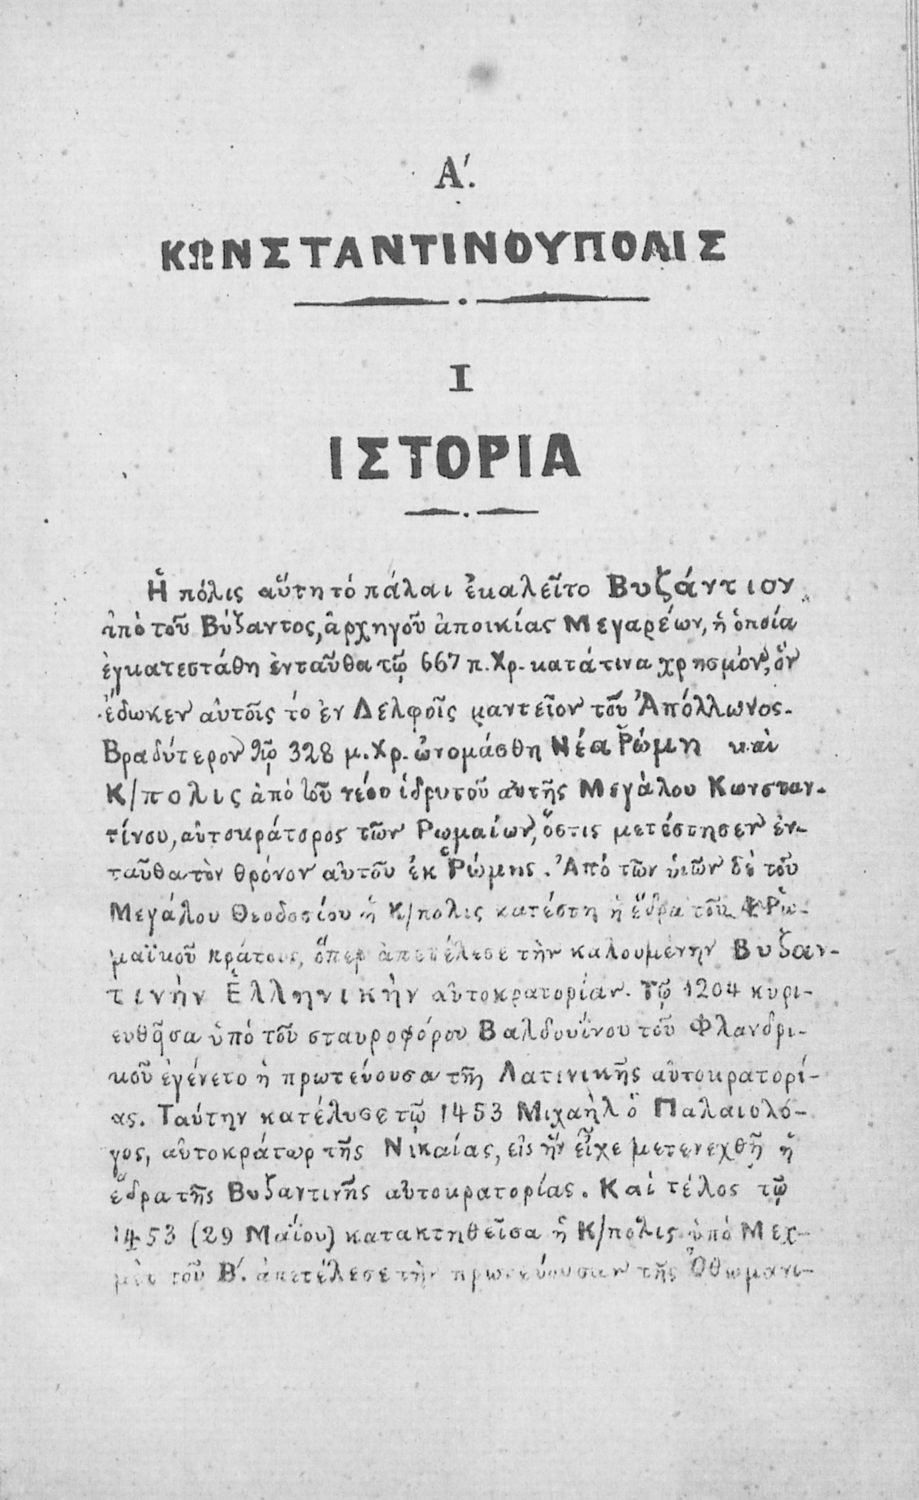 Α΄.
ΚΩΝΣΤΑΝΤΙΝΟΥΠΟΛΙΣ
Ι
ΙΣΤΟΡΙΑ
Ἡ πόλις αὕτη τό πάλαι ἐκαλεῖτο Βυζάντιον
ἀπὸ τοῦ Βύζαντος, ἀρχηγοῦ ἀποικίας Μεγαρέων, ἡ ὁποία
ἐγκατεστάθη ἐνταῦθα τῷ 667 π. Χρ. κατά τινα χρησμόν, ὅν
ἔδωκεν αὐτοῖς τὸ ἐν Δελφοῖς μαντεῖον τοῦ Ἀπόλλωνος.
Βραδύτερον τῷ 328 μ. Χρ. ὠνομάσθη Νέα Ῥώμη καὶ
Κ/πολις ἀπὸ τοῦ νέου ἱδρυτοῦ αὐτῆς Μεγάλου Κωνσταν-
τίνου, αὐτοκράτορος τῶν Ρωμαίων, ὅστις μετέστησεν ἐν-
ταῦθα τὸν θρόνον αὐτοῦ ἐκ Ῥώμης. Ἀπό τῶν ὑιῶν δὲ τοῦ
Μεγάλου Θεοδοσίου ἡ Κ/πολις κατέστη ἡ ἕδρα τοῦ Ῥω-
μαϊκοῦ κράτους, ὅπερ ἀπετέλεσε τὴν καλουμένην Βυζαν-
τινὴν Ἑλληνικὴν αὐτοκρατορίαν. Τῷ 1204 κυρι-
ευθῆσα ὑπὸ τοῦ σταυροφόρου Βαλδουΐνου τοῦ Φλανδρι-
κοῦ ἐγένετο ἡ πρωτεύουσα τῆς Λατινικῆς αὐτοκρατορί-
ας. Ταύτην κατέλυσε τῷ 1453 Μιχαὴλ ὁ Παλαιολό-
γος, αὐτοκράτωρ τῆς Νικαίας, εἰς ἥν εἶχε μετενεχθῆ ἡ
ἕδρα τῆς Βυζαντινῆς αὐτοκρατορίας. Καὶ τέλος τῷ
1453 (29 Μαΐου) κατακτηθεῖσα ἡ Κ/πολις ὑπὸ Μεχ-
μὲτ τοῦ Β΄. ἀπετέλεσε τὴν πρωτεύουσαν τῆς Ὀθωμανι-